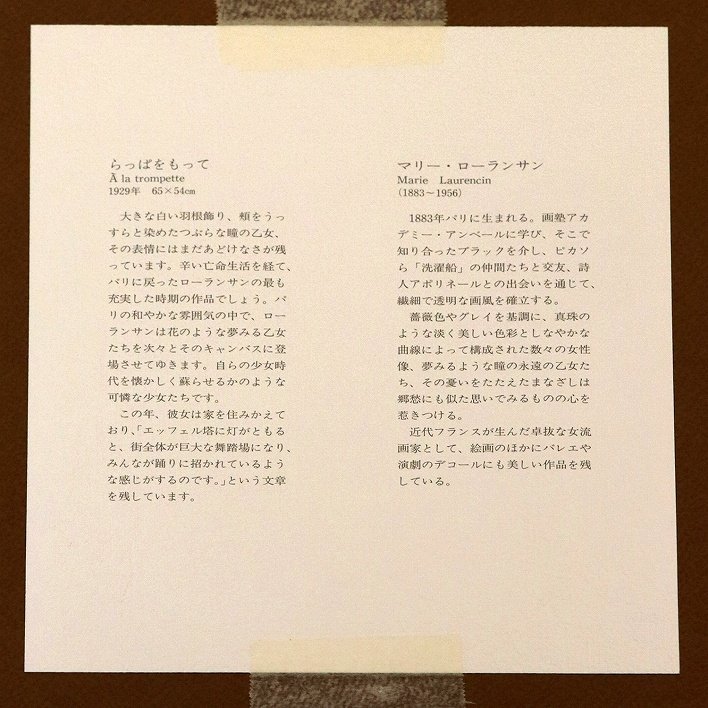 らっぱをもって
À la trompette
1929年　65×54cm
大きな白い羽根飾り、頬をうっ
すらと染めたつぶらな瞳の乙女、
その表情にはまだあどけなさが残
っています。辛い亡命生活を経て、
パリに戻ったローランサンの最も
充実した時期の作品でしょう。パ
リの和やかな雰囲気の中で、ロー
ランサンは花のような夢みる乙女
たちを次々とそのキャンバスに登
場させてゆきます。自らの少女時
代を懐かしく蘇らせるかのような
可憐な少女たちです。
この年、彼女は家を住みかえて
おり、「エッフェル塔に灯がともる
と、街全体が巨大な舞踏場になり、
みんなが踊りに招かれているよう
な感じがするのです。」という文章
を残しています。
マリー・ローランサン
Marie　Laurencin
(1883～1956)
1883年パリに生まれる。画塾アカ
デミー・アンベールに学び、そこで
知り合ったブラックを介し、ピカソ
ら「洗濯船」の仲間たちと交友、詩
人アポリネールとの出会いを通じて、
繊細で透明な画風を確立する。
薔薇色やグレイを基調に、真珠の
ような淡く美しい色彩としなやかな
曲線によって構成された数々の女性
像、夢みるような瞳の永遠の乙女た
ち、その憂いをたたえたまなざしは
郷愁にも似た思いでみるものの心を
惹きつける。
近代フランスが生んだ卓抜な女流
画家として、絵画のほかにバレエや
演劇のデコールにも美しい作品を残
している。